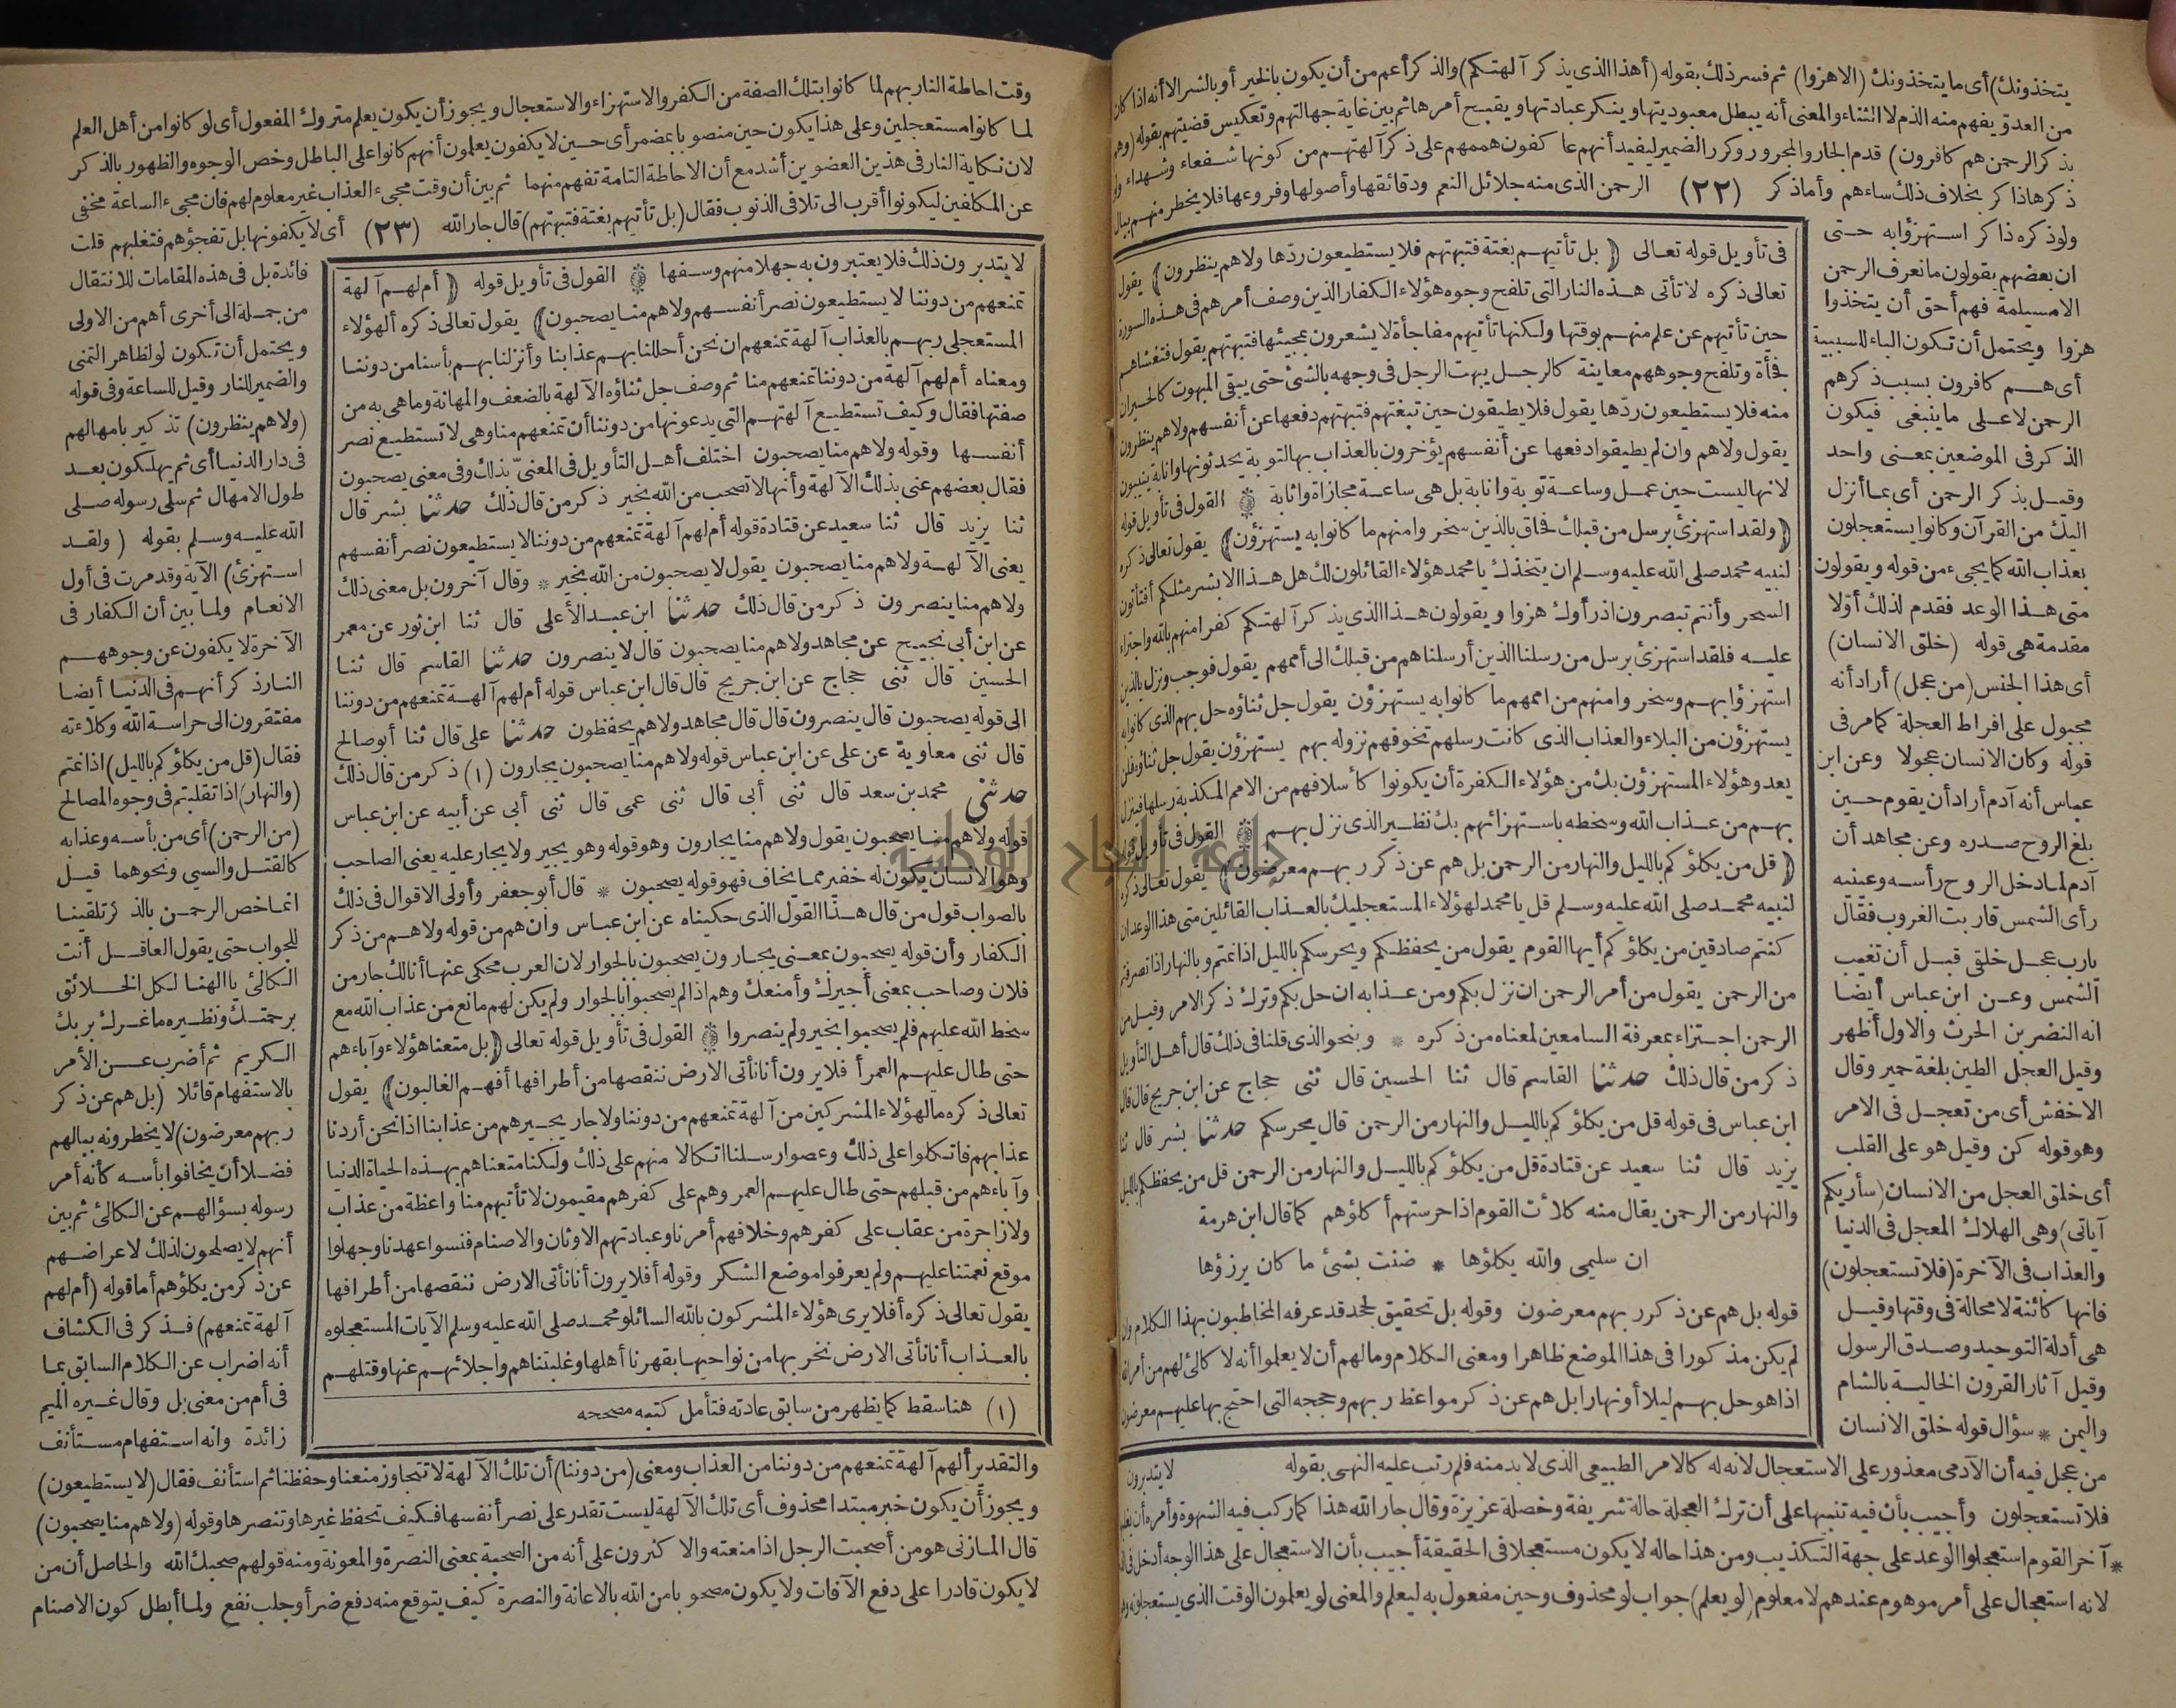 يتخذونك) أى ما يتخذونك (الا هزوا) ثم فسر ذلك بقوله (أهذا الذى يذكر آلهتكم) والذكر أعم من أن يكون بالخير أو بالشر الا أنه اذا كان
من العدو يفهم منه الذم لا الثناء والمعنى أنه يبطل معبوديتها وينكر عبادتها ويقبح أمرها ثم بين غاية جهالتهم وتعكيس قضيتهم بقوله (وهم
بذكر الرحمن هم كافرون) قدم الجار والمجرور وكرر الضمير ليفيد أنهم عاكفون هممهم على ذكر آلهتهم من كونها شفعاء وشهداء ولو
ذكرها ذاكر بخلاف ذلك ساءهم وأما ذكر (٢٢) الرحمن الذى منه جلائل النعم ودقائقها وأصولها وفروعها فلا يخطر منهم ببال
ولو ذكره ذاكر استهزؤا به حتى
ان بعضهم يقولون ما نعرف الرحمن
الا مسيلمة فهم أحق أن يتخذوا
هزوا ويحتمل أن تكون الباء للسببية
أى هم كافرون بسبب ذكرهم
الرحمن لا على ما ينبغى فيكون
الذكر فى الموضعين بمعنى واحد
وقيل بذكر الرحمن أى بما أنزل
اليك من القرآن وكانوا يستعجلون
بعذاب الله كما يجىء من قوله ويقولون
متى هذا الوعد فقدم لذلك أولا
مقدمة هى قوله (خلق الانسان)
أى هذا الجنس (من عجل) أراد أنه
مجبول على افراط العجلة كما مر فى
قوله وكان الانسان عجولا وعن ابن
عباس أنه آدم أراد أن يقوم حين
بلغ الروح صدره وعن مجاهد أن
آدم لما دخل الروح رأسه وعينيه
رأى الشمس قاربت الغروب فقال
يا رب عجل خلقى قبل أن تغيب
الشمس وعن ابن عباس أيضا
انه النضر بن الحرث والاول أظهر
وقيل العجل الطين بلغة حمير وقال
الاخفش أى من تعجل فى الامر
وهو قوله كن وقيل هو على القلب
أى خلق العجل من الانسان (سأريكم
آياتى) وهى الهلاك المعجل فى الدنيا
والعذاب فى الآخرة (فلا تستعجلون)
فانها كائنة لا محالة فى وقتها وقيل
هى أدلة التوحيد وصدق الرسول
وقيل آثار القرون الخالية بالشام
واليمن * سؤال قوله خلق الانسان
فى تأويل قوله تعالى ﴿ بل تأتيهم بغتة فتبهتهم فلا يستطيعون ردّها ولا هم ينظرون﴾ يقول
تعالى ذكره لا تأتى هذه النار التى تلفح وجوه هؤلاء الكفار الذين وصف أمرهم فى هذه السورة
حين تأتيهم عن علم منهم بوقتها ولكنها تأتيهم مفاجأة لا يشعرون بمجيئها فتبهتهم يقول فتغشاهم
فجأة وتلفح وجوههم معاينة كالرجل يبهت الرجل فى وجهه بالشئ حتى يبقى المبهوت كالحيران
منه فلا يستطيعون ردّها يقول فلا يطيقون حين تبغتهم فتبهتهم دفعها عن أنفسهم ولا هم ينظرون
يقول ولا هم وان لم يطيقوا دفعها عن أنفسهم يؤخرون بالعذاب بها لتوبة يحدثونها وانابة ينيبون
لانها ليست حين عمل وساعة توبة وانابة بل هى ساعة مجازاة واثابة ۞ القول فى تأويل قوله
﴿ولقد استهزئ برسل من قبلك فحاق بالذين سخروا منهم ما كانوا به يستهزؤن﴾ يقول تعالى ذكره
لنبيه محمد صلى الله عليه وسلم ان يتخذك يا محمد هؤلاء القائلون لك هل هذا الا بشر مثلكم أفتأتون
السحر وأنتم تبصرون اذ رأوك هزوا ويقولون هذا الذى يذكر آلهتكم كفرا منهم بالله واجتراء
عليه فلقد استهزئ برسل من رسلنا الذين أرسلناهم من قبلك الى أممهم يقول فوجب ونزل بالذين
استهزؤا بهم وسخروا منهم من اممهم ما كانوا به يستهزؤن يقول جل ثناؤه حل بهم الذى كانوا به
يستهزؤن من البلاء والعذاب الذى كانت رسلهم تخوفهم نزوله بهم يستهزؤن يقول جل ثناؤه فلن
يعدو هؤلاء المستهزؤن بك من هؤلاء الكفرة أن يكونوا كأسلافهم من الامم المكذبة رسلها فينزل
بهم من عذاب الله وسخطه باستهزائهم بك نظير الذى نزل بهم ۞ القول فى تأويل قوله
﴿ قل من يكلؤكم بالليل والنهار من الرحمن بل هم عن ذكر ربهم معرضون﴾ يقول تعالى ذكره
لنبيه محمد صلى الله عليه وسلم قل يا محمد لهؤلاء المستعجليك بالعذاب القائلين متى هذا الوعد ان
كنتم صادقين من يكلؤكم أيها القوم يقول من يحفظكم ويحرسكم بالليل اذا نمتم وبالنهار اذا تصرفتم
من الرحمن يقول من أمر الرحمن ان نزل بكم ومن عذابه ان حل بكم وترك ذكر الامر وقيل من
الرحمن اجتزاء بمعرفة السامعين لمعناه من ذكره * وبنحو الذى قلنا فى ذلك قال أهل التأويل
ذكر من قال ذلك حدثنا القاسم قال ثنا الحسين قال ثنى حجاج عن ابن جريج قال قال
ابن عباس فى قوله قل من يكلؤكم بالليل والنهار من الرحمن قال يحرسكم حدثنا بشر قال ثنا
يزيد قال ثنا سعيد عن قتادة قل من يكلؤكم بالليل والنهار من الرحمن قل من يحفظكم بالليل
والنهار من الرحمن يقال منه كلأت القوم اذا حرستهم أكلؤهم كما قال ابن هرمة
ان سليمى والله يكلؤها * ضنت بشئ ما كان يرزؤها
قوله بل هم عن ذكر ربهم معرضون وقوله بل تحقيق لجحد قد عرفه المخاطبون بهذا الكلام وان
لم يكن مذكورا فى هذا الموضع ظاهرا ومعنى الكلام وما لهم أن لا يعلموا أنه لا كالئ لهم من أمر الله
اذا هو حل بهم ليلا أو نهارا بل هم عن ذكر مواعظ ربهم وحججه التى احتج بها عليهم معرضون
لا يتدبرون
من عجل فيه أن الآدمى معذور على الاستعجال لانه له كالامر الطبيعى الذى لا بد منه فلم رتب عليه النهى بقوله
فلا تستعجلون وأجيب بأن فيه تنبيها على أن ترك العجلة حالة شريفة وخصلة عزيزة وقال جار الله هذا كما ركب فيه الشهوة وأمره أن يغلبها
* آخر القوم استعجلوا الوعد على جهة التكذيب ومن هذا حاله لا يكون مستعجلا فى الحقيقة أجيب بأن الاستعجال على هذا الوجه أدخل فى
لانه استعجال على أمر موهوم عندهم لا معلوم (لو يعلم) جواب لو محذوف وحين مفعول به ليعلم والمعنى لو يعلمون الوقت الذى يستعجلونه وهو
وقت احاطة النار بهم لما كانوا بتلك الصفة من الكفر والاستهزاء والاستعجال ويجوز أن يكون يعلم متروك المفعول أى لو كانوا من أهل العلم
لما كانوا مستعجلين وعلى هذا يكون حين منصوبا بمضمر أى حين لا يكفون يعلمون أنهم كانوا على الباطل وخص الوجوه والظهور بالذكر
لان نكاية النار فى هذين العضوين أشد مع أن الاحاطة التامة تفهم منهما ثم بين أن وقت مجىء العذاب غير معلوم لهم فان مجىء الساعة مخفى
عن المكلفين ليكونوا أقرب الى تلافى الذنوب فقال (بل تأتيهم بغتة فتبهتهم) قال جار الله (٢٣) أى لا يكفونها بل تفجؤهم فتغلبهم قلت
لا يتدبرون ذلك فلا يعتبرون به جهلا منهم وسفها ۞ القول فى تأويل قوله ﴿ أم لهم آلهة
تمنعهم من دوننا لا يستطيعون نصر أنفسهم ولا هم منا يصحبون﴾ يقول تعالى ذكره ألهؤلاء
المستعجلى ربهم بالعذاب آلهة تمنعهم ان نحن أحللنا بهم عذابنا وأنزلنا بهم بأسنا من دوننا
ومعناه أم لهم آلهة من دوننا تمنعهم منا ثم وصف جل ثناؤه الآلهة بالضعف والمهانة وما هى به من
صفتها فقال وكيف تستطيع آلهتهم التى يدعونها من دوننا أن تمنعهم منا وهى لا تستطيع نصر
أنفسها وقوله ولا هم منا يصحبون اختلف أهل التأويل فى المعنىّ بذلك وفى معنى يصحبون
فقال بعضهم عنى بذلك الآلهة وأنها لا تصحب من الله بخير ذكر من قال ذلك حدثنا بشر قال
ثنا يزيد قال ثنا سعيد عن قتادة قوله أم لهم آلهة تمنعهم من دوننا لا يستطيعون نصر أنفسهم
يعنى الآلهة ولا هم منا يصحبون يقول لا يصحبون من الله بخير * وقال آخرون بل معنى ذلك
ولا هم منا ينصرون ذكر من قال ذلك حدثنا ابن عبد الأعلى قال ثنا ابن ثور عن معمر
عن ابن أبى نجيح عن مجاهد ولا هم منا يصحبون قال لا ينصرون حدثنا القاسم قال ثنا
الحسين قال ثنى حجاج عن ابن جريج قال قال ابن عباس قوله أم لهم آلهة تمنعهم من دوننا
الى قوله يصحبون قال ينصرون قال قال مجاهد ولا هم يحفظون حدثنا على قال ثنا أبو صالح
قال ثنى معاوية عن على عن ابن عباس قوله ولا هم منا يصحبون يجارون (١) ذكر من قال ذلك
حدثنى محمد بن سعد قال ثنى أبى قال ثنى عمى قال ثنى أبى عن أبيه عن ابن عباس
قوله ولا هم منا يصحبون يقول ولا هم منا يجارون وهو قوله وهو يجير ولا يجار عليه يعنى الصاحب
وهو الانسان يكون له خفير مما يخاف فهو قوله يصحبون * قال أبو جعفر وأولى الاقوال فى ذلك
بالصواب قول من قال هذا القول الذى حكيناه عن ابن عباس وان هم من قوله ولا هم من ذكر
الكفار وأن قوله يصحبون بمعنى يجارون يصحبون بالجوار لان العرب محكى عنها أنا لك جار من
فلان وصاحب بمعنى أجيرك وأمنعك وهم اذا لم يصحبوا بالجوار ولم يكن لهم مانع من عذاب الله مع
سخط الله عليهم فلم يصحبوا بخير ولم ينصروا ۞ القول فى تأويل قوله تعالى ﴿بل متعنا هؤلاء وآباءهم
حتى طال عليهم العمر أفلا يرون أنا نأتى الارض ننقصها من أطرافها أفهم الغالبون﴾ يقول
تعالى ذكره ما لهؤلاء المشركين من آلهة تمنعهم من دوننا ولا جار يجيرهم من عذابنا اذا نحن أردنا
عذابهم فاتكلوا على ذلك وعصوا رسلنا اتكالا منهم على ذلك ولكنا متعناهم بهذه الحياة الدنيا
وآباءهم من قبلهم حتى طال عليهم العمر وهم على كفرهم مقيمون لا تأتيهم منا واعظة من عذاب
ولا زاجرة من عقاب على كفرهم وخلافهم أمرنا وعبادتهم الاوثان والاصنام فنسوا عهدنا وجهلوا
موقع نعمتنا عليهم ولم يعرفوا موضع الشكر وقوله أفلا يرون أنا نأتى الارض ننقصها من أطرافها
يقول تعالى ذكره أفلا يرى هؤلاء المشركون بالله السائلو محمد صلى الله عليه وسلم الآيات المستعجلوه
بالعذاب أنا نأتى الارض نخربها من نواحيها بقهرنا أهلها وغلبتناهم واجلائهم عنها وقتلهم
(١) هنا سقط كما يظهر من سابق عادته فتأمل كتبه مصححه
فائدة بل فى هذه المقامات للانتقال
من جملة الى أخرى أهم من الاولى
ويحتمل أن تكون لو لظاهر التمنى
والضمير للنار وقيل للساعة وفى قوله
(ولا هم ينظرون) تذكير بامهالهم
فى دار الدنيا أى ثم يهلكون بعد
طول الامهال ثم سلى رسوله صلى
الله عليه وسلم بقوله (ولقد
استهزئ) الآية وقد مرت فى أول
الانعام ولما بين أن الكفار فى
الآخرة لا يكفون عن وجوههم
النار ذكر أنهم فى الدنيا أيضا
مفتقرون الى حراسة الله وكلاءته
فقال (قل من يكلؤكم بالليل) اذا نمتم
(والنهار) اذا تقلبتم فى وجوه المصالح
(من الرحمن) أى من بأسه وعذابه
كالقتل والسبى ونحوهما قيل
انما خص الرحمن بالذكر تلقينا
للجواب حتى يقول العاقل أنت
الكالئ يا الهنا لكل الخلائق
برحمتك ونظيره ما غرك بربك
الكريم ثم أضرب عن الأمر
بالاستفهام قائلا (بل هم عن ذكر
ربهم معرضون) لا يخطرونه ببالهم
فضلا أن يخافوا بأسه كأنه أمر
رسوله بسؤالهم عن الكالئ ثم بين
أنهم لا يصلحون لذلك لاعراضهم
عن ذكر من يكلؤهم أما قوله (أم لهم
آلهة تمنعهم) فذكر فى الكشاف
أنه اضراب عن الكلام السابق بما
فى أم من معنى بل وقال غيره الميم
زائدة وانه استفهام مستأنف
والتقدير ألهم آلهة تمنعهم من دوننا من العذاب ومعنى (من دوننا) أن تلك الآلهة لا تتجاوز منعنا وحفظنا ثم استأنف فقال (لا يستطيعون)
ويجوز أن يكون خبر مبتدا محذوف أى تلك الآلهة ليست تقدر على نصر أنفسها فكيف تحفظ غيرها وتنصرها وقوله (ولا هم منا يصحبون)
قال المازنى هو من أصحبت الرجل اذا منعته والاكثرون على أنه من الصحبة بمعنى النصرة والمعونة ومنه قولهم صحبك الله والحاصل أن من
لا يكون قادرا على دفع الآفات ولا يكون مصحوبا من الله بالاعانة والنصرة كيف يتوقع منه دفع ضر أو جلب نفع ولما أبطل كون الاصنام
جامعة النجاح الوطنية